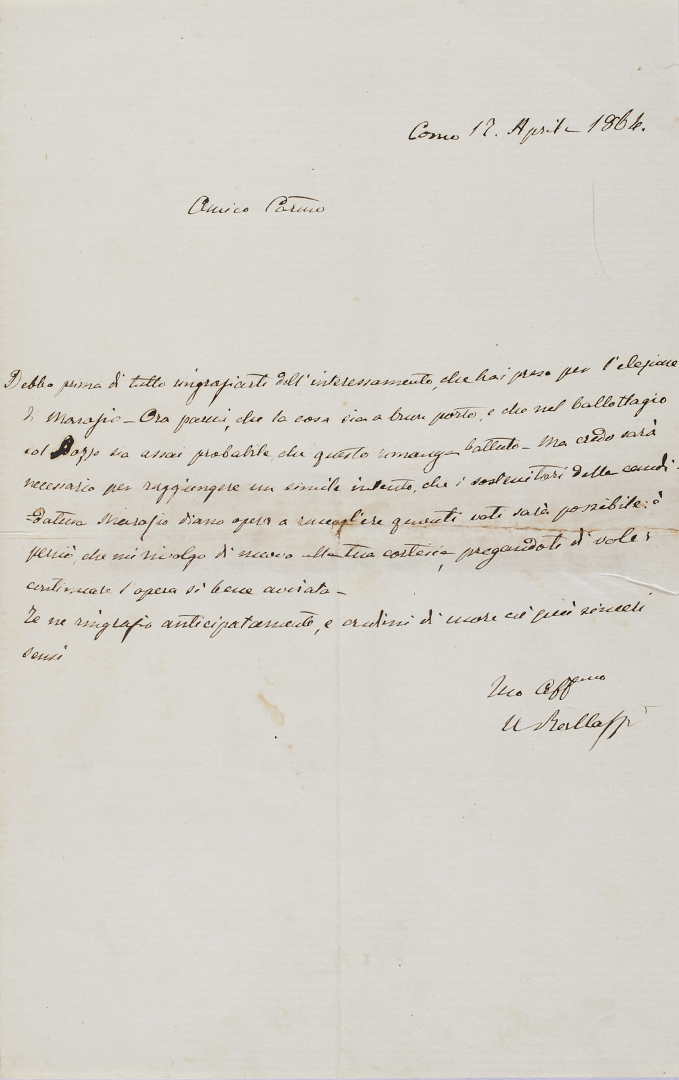 Como 17. Aprile 1864.
Amico Car.mo
Debbo prima di tutto ringraziarti dell'interessamento, che hai preso per l'elezione
di Marazio – Ora parmi, che la cosa sia a buon porto, e che nel ballottagio
col sia assai probabile, che questo rimanga battuto – Ma credo sarà
necessario per raggiungere un simile intento, che i sostenitori della candi-
datura Marazio diano opera a raccogliere quanti voti sarà possibile: è
perciò, che mi rivolgo di nuovo alla tua cortesia, pregandoti di voler
continuare l'opera sì bene avviata –
Te ne ringrazio anticipatamente, e credimi di cuore coi più sinceri
sensi
Tuo Aff.mo